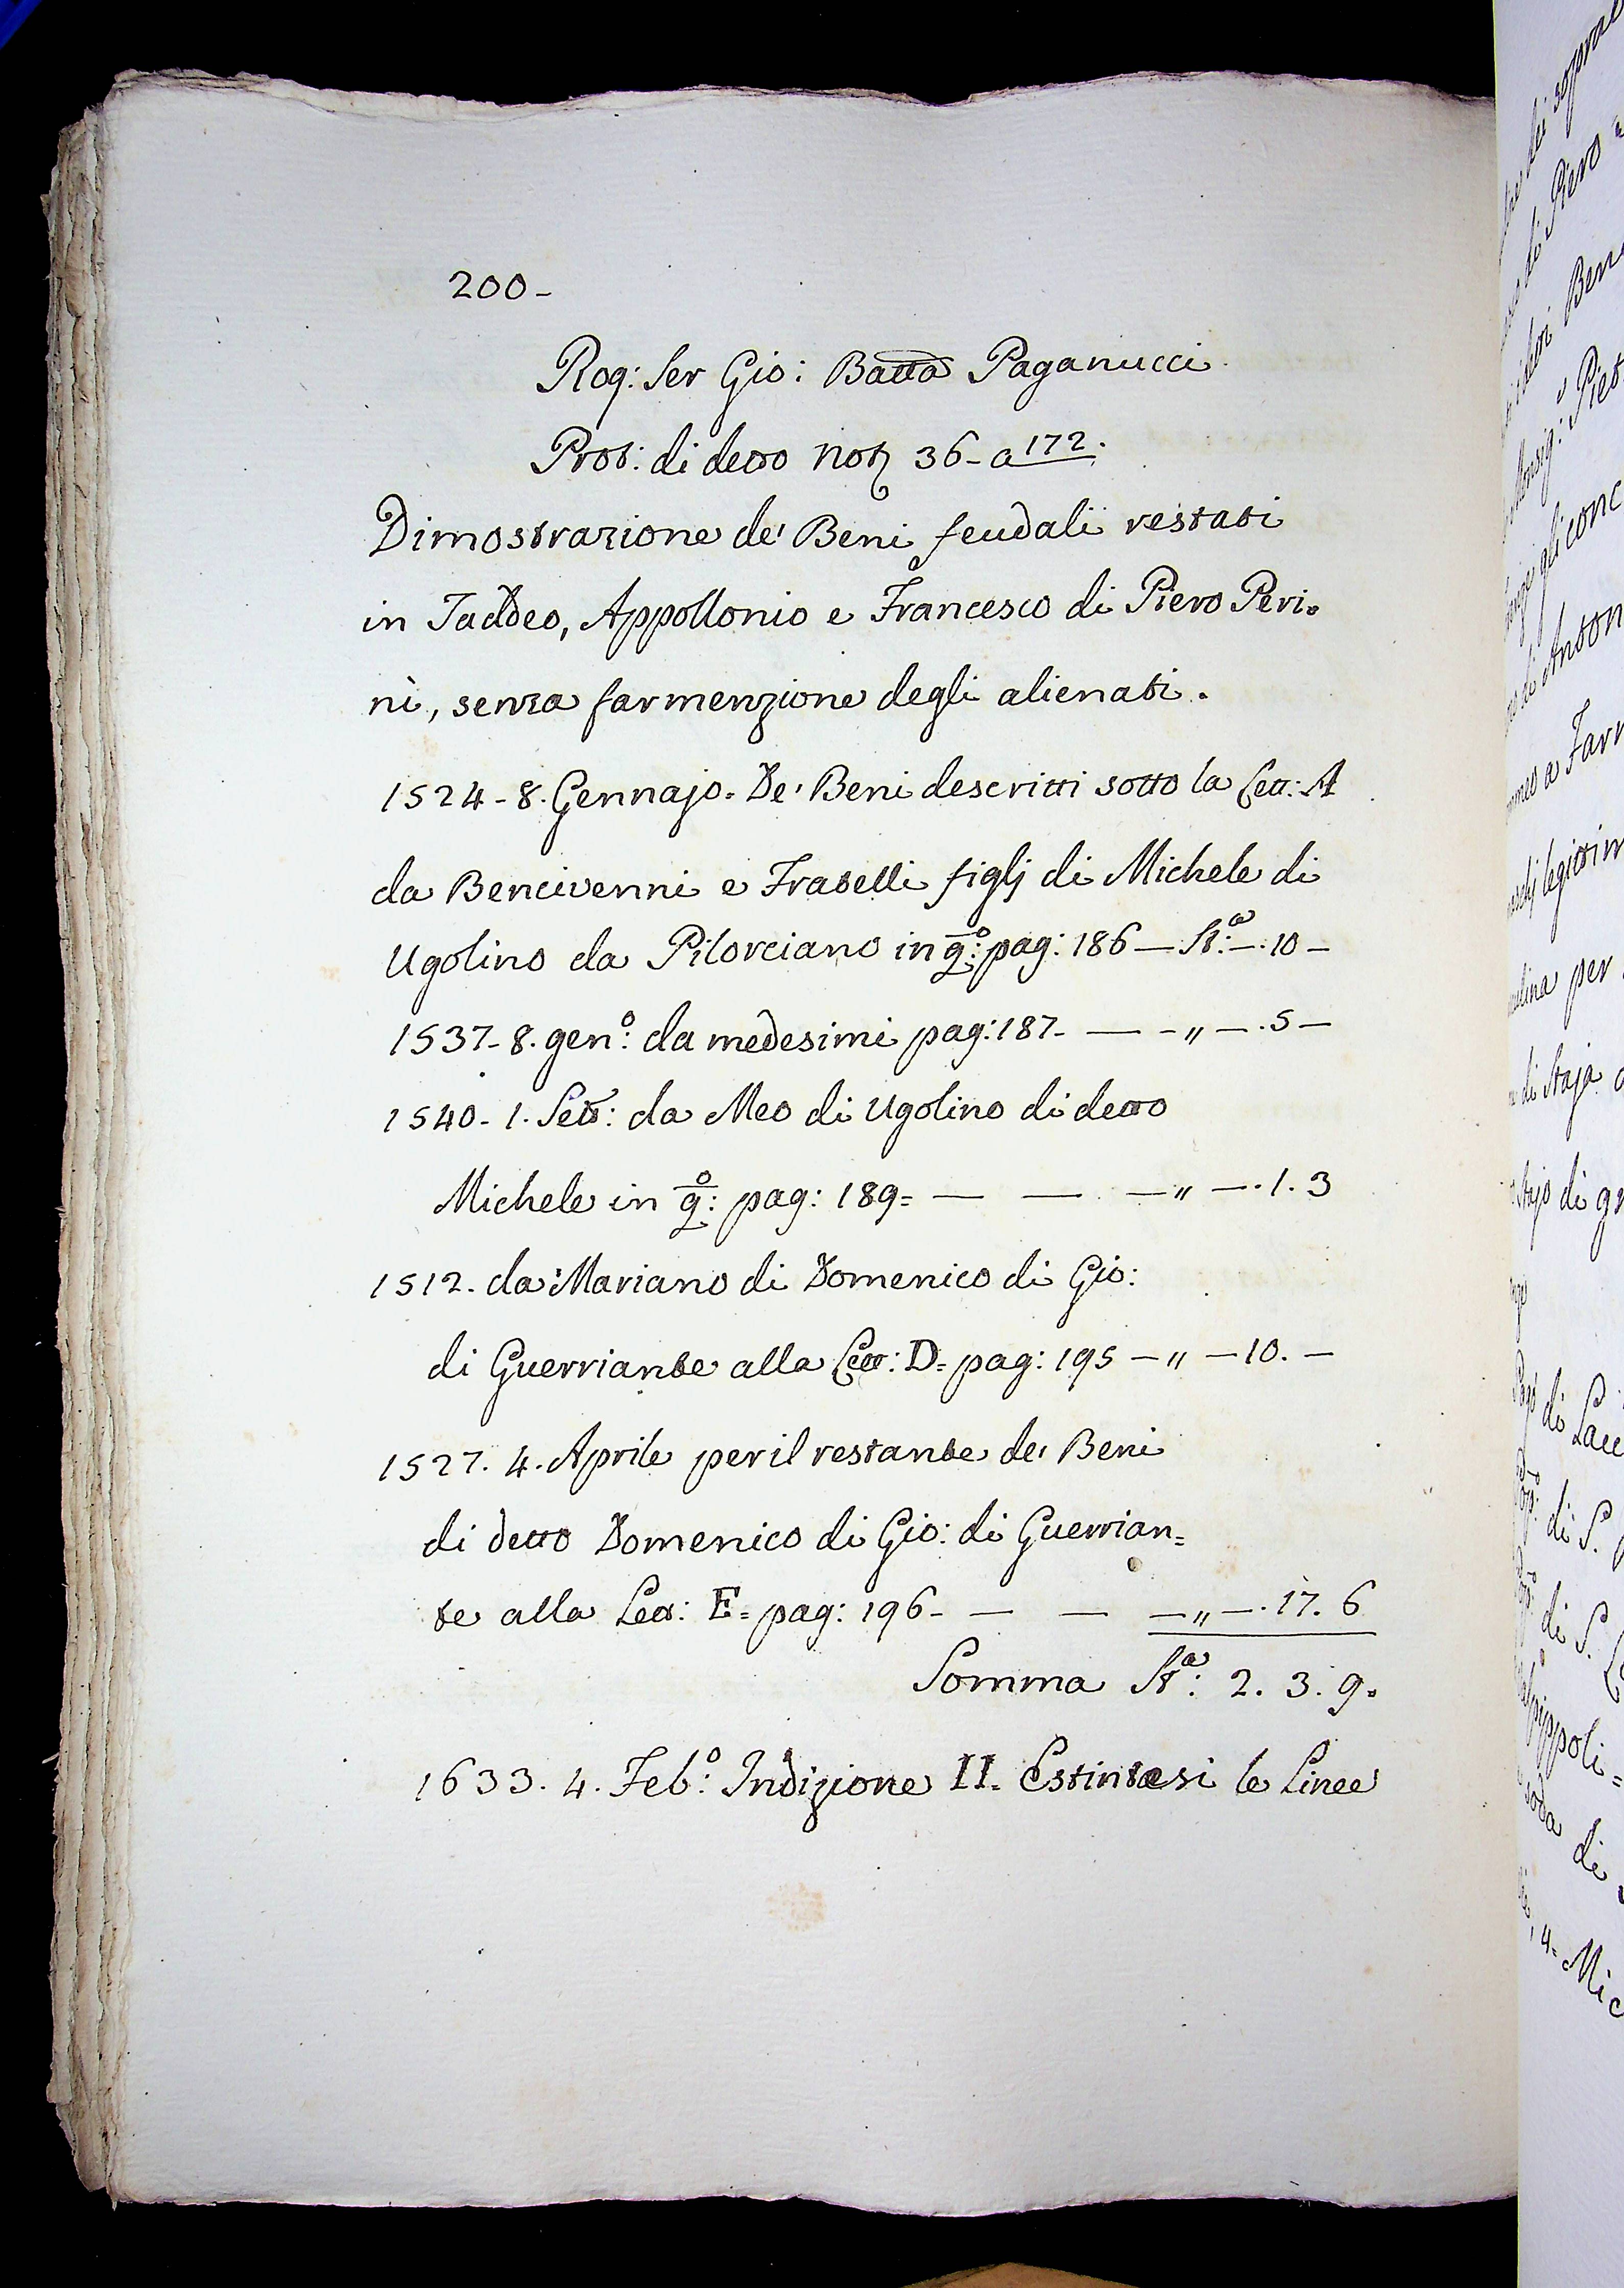 200-
Rog: Ser Gio: Batta Paganucci
Prot: di detto Not 36- a 172.
Dimostrazione de' Beni feudali restati
in Taddeo, Appollonio e Francesco di Piero Peri=
ni, senza far menzione degli alienati.
1524-8. Gennajo. De' Beni descritti sotto la Lett: A
da Bencivenni e Fratelli figlj di Michele di
Ugolino da Pilorciano in q:o pag: 186 — St:a —. 10 —
1537-8. gen:o da medesimi pag: 187- — - „ —. 5 —
1540- 1. Sett: da Meo di Ugolino di detto
Michele in q:o pag: 189= — — — „ —. 1. 3
1512. da Mariano di Domenico di Gio:
di Guerriante alla Lett: D= pag: 195 — „ — 10. —
1527. 4. Aprile per il restante de' Beni
di detto Domenico di Gio: di Guerrian=
te alla Lett: E= pag: 196- — — — „ —. 17. 6
Somma St:a 2. 3. 9.
1633. 4. Feb:o Indizione II. Estintesi le Linee
di Piero
Beni
Piet
gli conc
di Anton
a Farn
per
di Staja
di gr
di
di S.
di S.
di
4= Mic